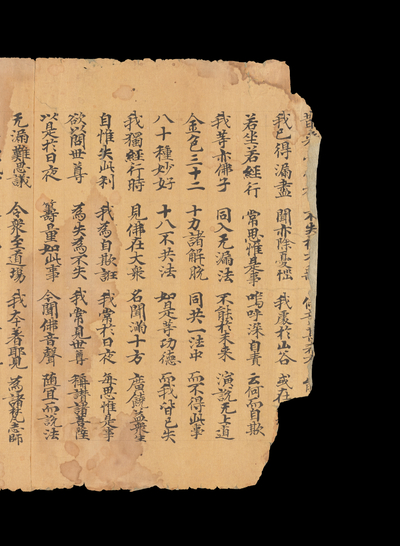 不失
我已得漏盡 聞亦除憂惱 我處於山谷 或在
若坐若經行 常思惟是事 嗚呼深自責 云何而自欺
我等亦佛子 同入无漏法 不能於未來 演說无上道
金色三十二 十力諸解脫 同共一法中 而不得此事
八十種妙好 十八不共法 如是等功德 而我皆已失
我獨經行時 見佛在大衆 名聞滿十方 廣饒益衆生
自惟失此利 我為自欺誑 我常於日夜 每思惟是事
欲以問世尊 為失為不失 我常見世尊 稱讚諸菩薩
以是於日夜 籌量如此事 今聞佛音聲 隨宜而說法
无漏難思議 令衆至道場 我本著耶見 為諸梵志師